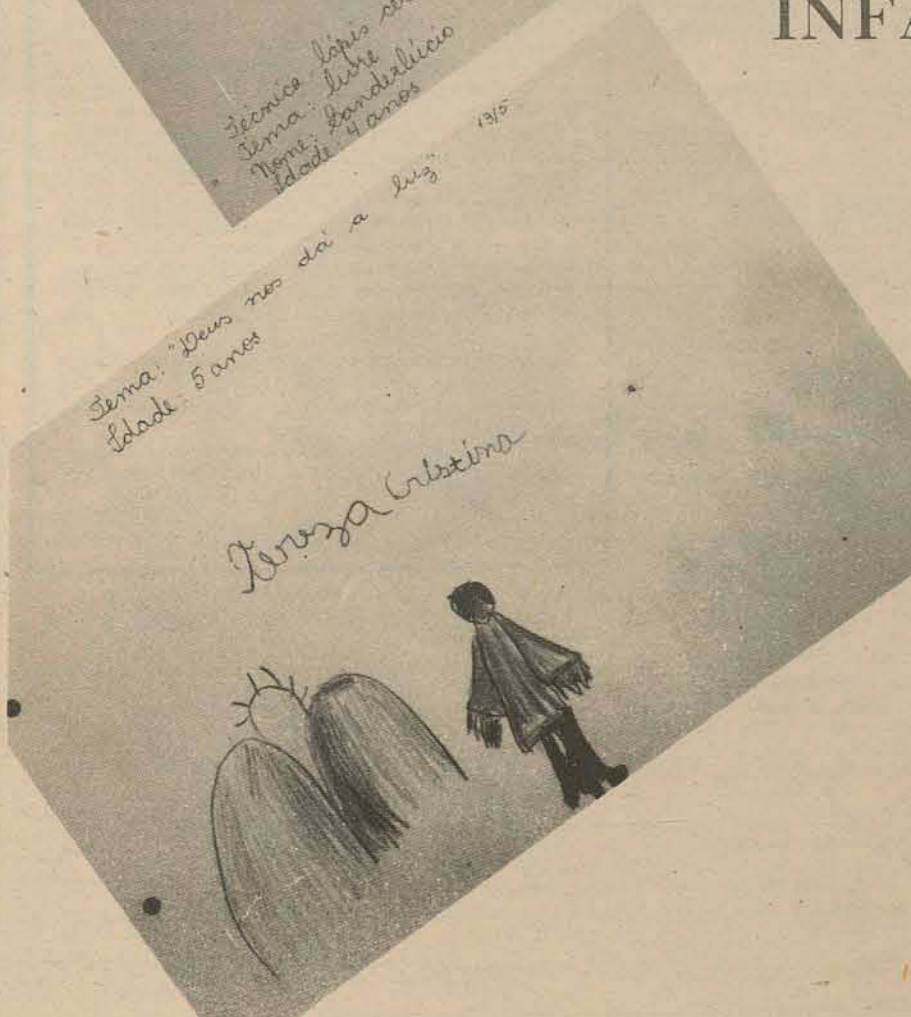 INFA
Técnica lápis
Tema: livre
Nome: Sanderlúcio
Idade: 4 anos
13/5
Tema: "Deus nos dá a luz"
Idade: 5 anos
Tereza Cristina